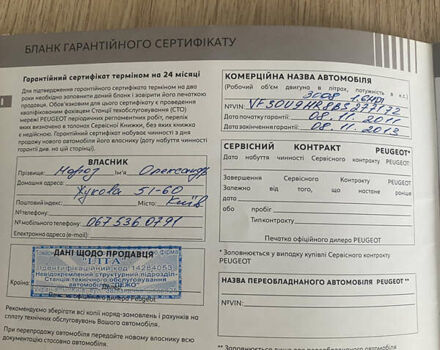 БЛАНК ГАРАНТІЙНОГО СЕРТИФІКАТУ
Гарантійний сертифікат терміном на 24 місяці
Для підтвердження гарантійного сертифікату терміном на два
роки необхідно заповнити даний бланк і завірити його печаткою
продавця. Обов'язковим для цього сертифікату є проведення
кваліфікованим фахівцем Станції техобслуговування (СТО)
мережі PEUGEOT періодичних регламентних робіт, перелік
яких визначено в талонах Сервісної Книжки, без яких книжка
є недійсною. Гарантійний сертифікат набуває чинності з дня
продажу нового автомобіля його власнику (дату набуття чинності
гарантії див. на цій сторінці).
ВЛАСНИК
Прізвище: Мороз Ім'я Олександр
Домашня адреса: Жукова 51-60
Поштовий індекс: Місто: Київ
№ телефону:
№ мобільного телефону: 067 536 0791
Електронна адреса (e-mail):
ДАНІ ЩОДО ПРОДАВЦЯ
"ІЛТА"
Ідентифікаційний код 14284053
Невідокремлений структурний підрозділ
Станція технічного обслуговування
автомобілів "ПЕЖО"
Країна
Рекомендуємо зберігати всі копії наряд-замовлень і рахунків на
сплату технічних обслуговувань Вашого автомобіля.
При перепродажу автомобіля передайте новому власнику всю
документацію стосовно автомобіля.
КОМЕРЦІЙНА НАЗВА АВТОМОБІЛЯ
(Робочий об'єм двигуна в літрах, потужність в к.с.)
3008
№VIN: VF30U9HR8BS
Дата початку гарантії: 08. 11. 2011
Дата закінчення гарантії: 08. 11. 2013
СЕРВІСНИЙ КОНТРАКТ PEUGEOT*
Дата набуття чинності Сервісного контракту PEUGEOT
Завершення Сервісного Контракту PEUGEOT
Залежно від того, що настане раніше
дата
або пробіг
Тип контракту:
Печатка офіційного дилера PEUGEOT
* Заповнюється у випадку купівлі Сервісного контракту
PEUGEOT
НАЗВА ПЕРЕОБЛАДНАНОГО АВТОМОБІЛЯ PEUGEOT **
№VIN: